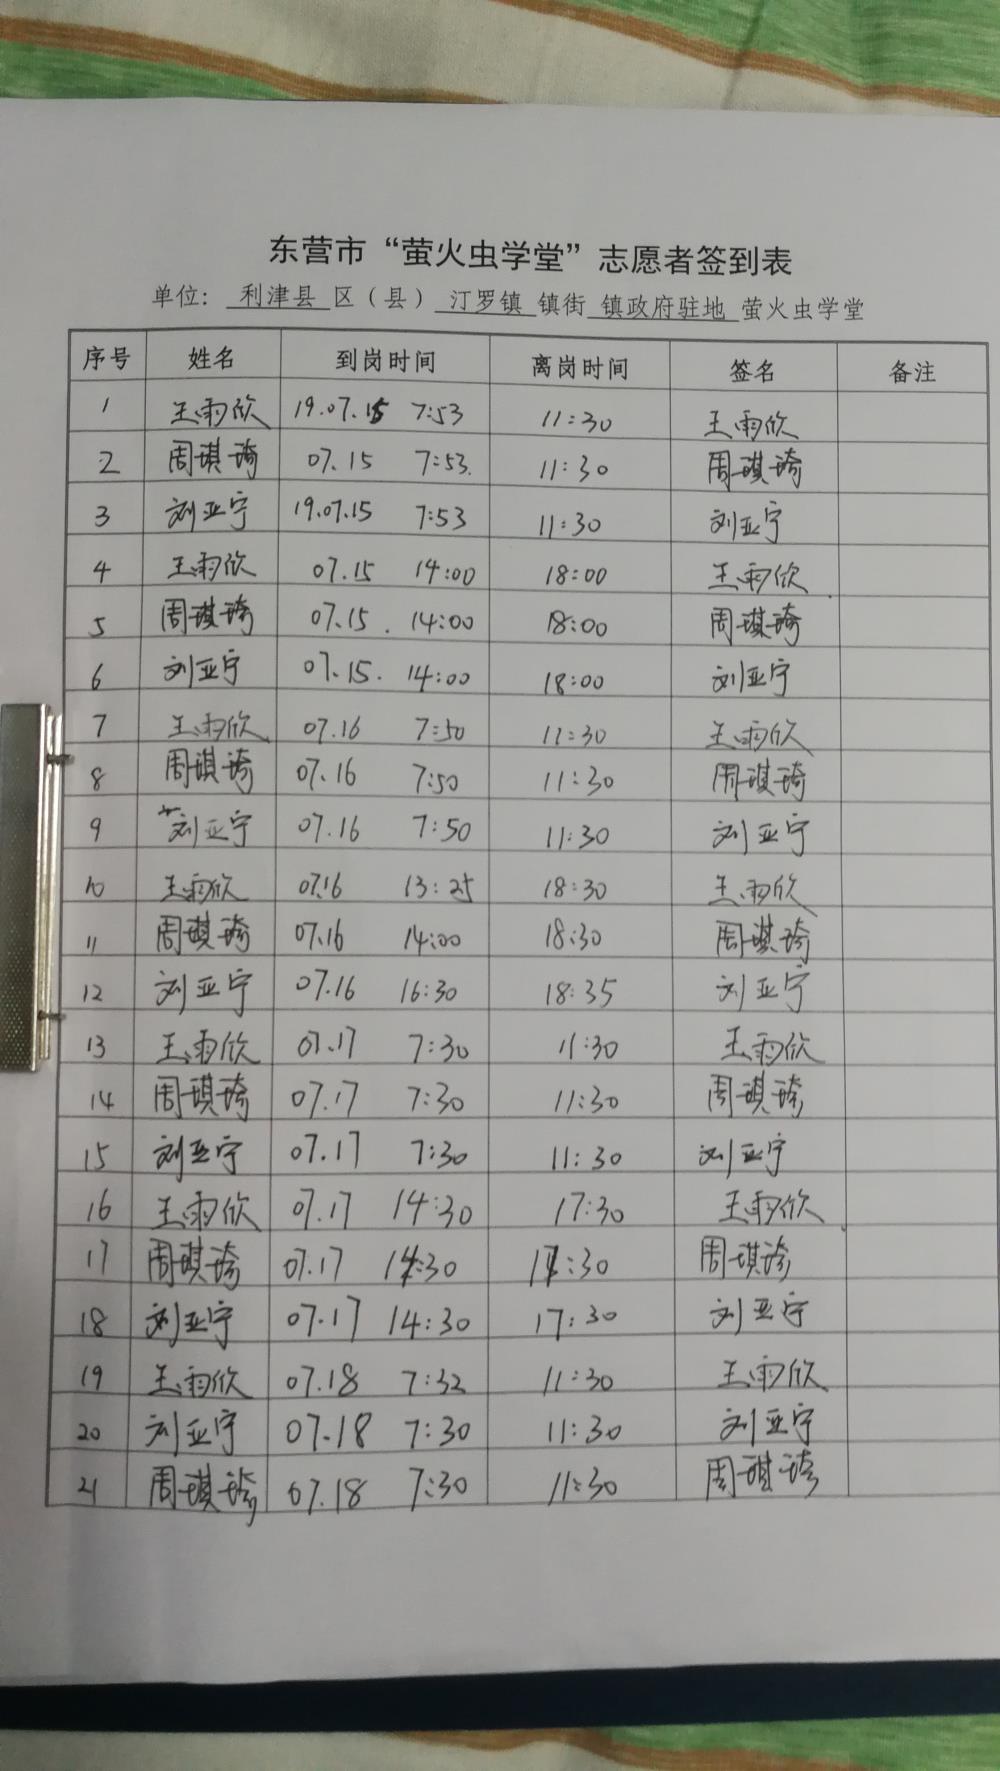 东营市“萤火虫学堂”志愿者签到表
单位： 利津县 区（县） 汀罗镇 镇街 镇政府驻地 萤火虫学堂
序号 姓名 到岗时间 离岗时间 签名 备注
1 王雨欣 19.07.15 7:53 11:30 王雨欣
2 周琪琦 07.15 7:53. 11:30 周琪琦
3 刘亚宁 19.07.15 7:53 11:30 刘亚宁
4 王雨欣 07.15 14:00 18:00 王雨欣
5 周琪琦 07.15. 14:00 18:00 周琪琦
6 刘亚宁 07.15. 14:00 18:00 刘亚宁
7 王雨欣 07.16 7:50 11:30 王雨欣
8 周琪琦 07.16 7:50 11:30 周琪琦
9 刘亚宁 07.16 7:50 11:30 刘亚宁
10 王雨欣 07.16 13:25 18:30 王雨欣
11 周琪琦 07.16 14:00 18:30 周琪琦
12 刘亚宁 07.16 16:30 18:35 刘亚宁
13 王雨欣 07.17 7:30 11:30 王雨欣
14 周琪琦 07.17 7:30 11:30 周琪琦
15 刘亚宁 07.17 7:30 11:30 刘亚宁
16 王雨欣 07.17 14:30 17:30 王雨欣
17 周琪琦 07.17 14:30 17:30 周琪琦
18 刘亚宁 07.17 14:30 17:30 刘亚宁
19 王雨欣 07.18 7:32 11:30 王雨欣
20 刘亚宁 07.18 7:30 11:30 刘亚宁
21 周琪琦 07.18 7:30 11:30 周琪琦